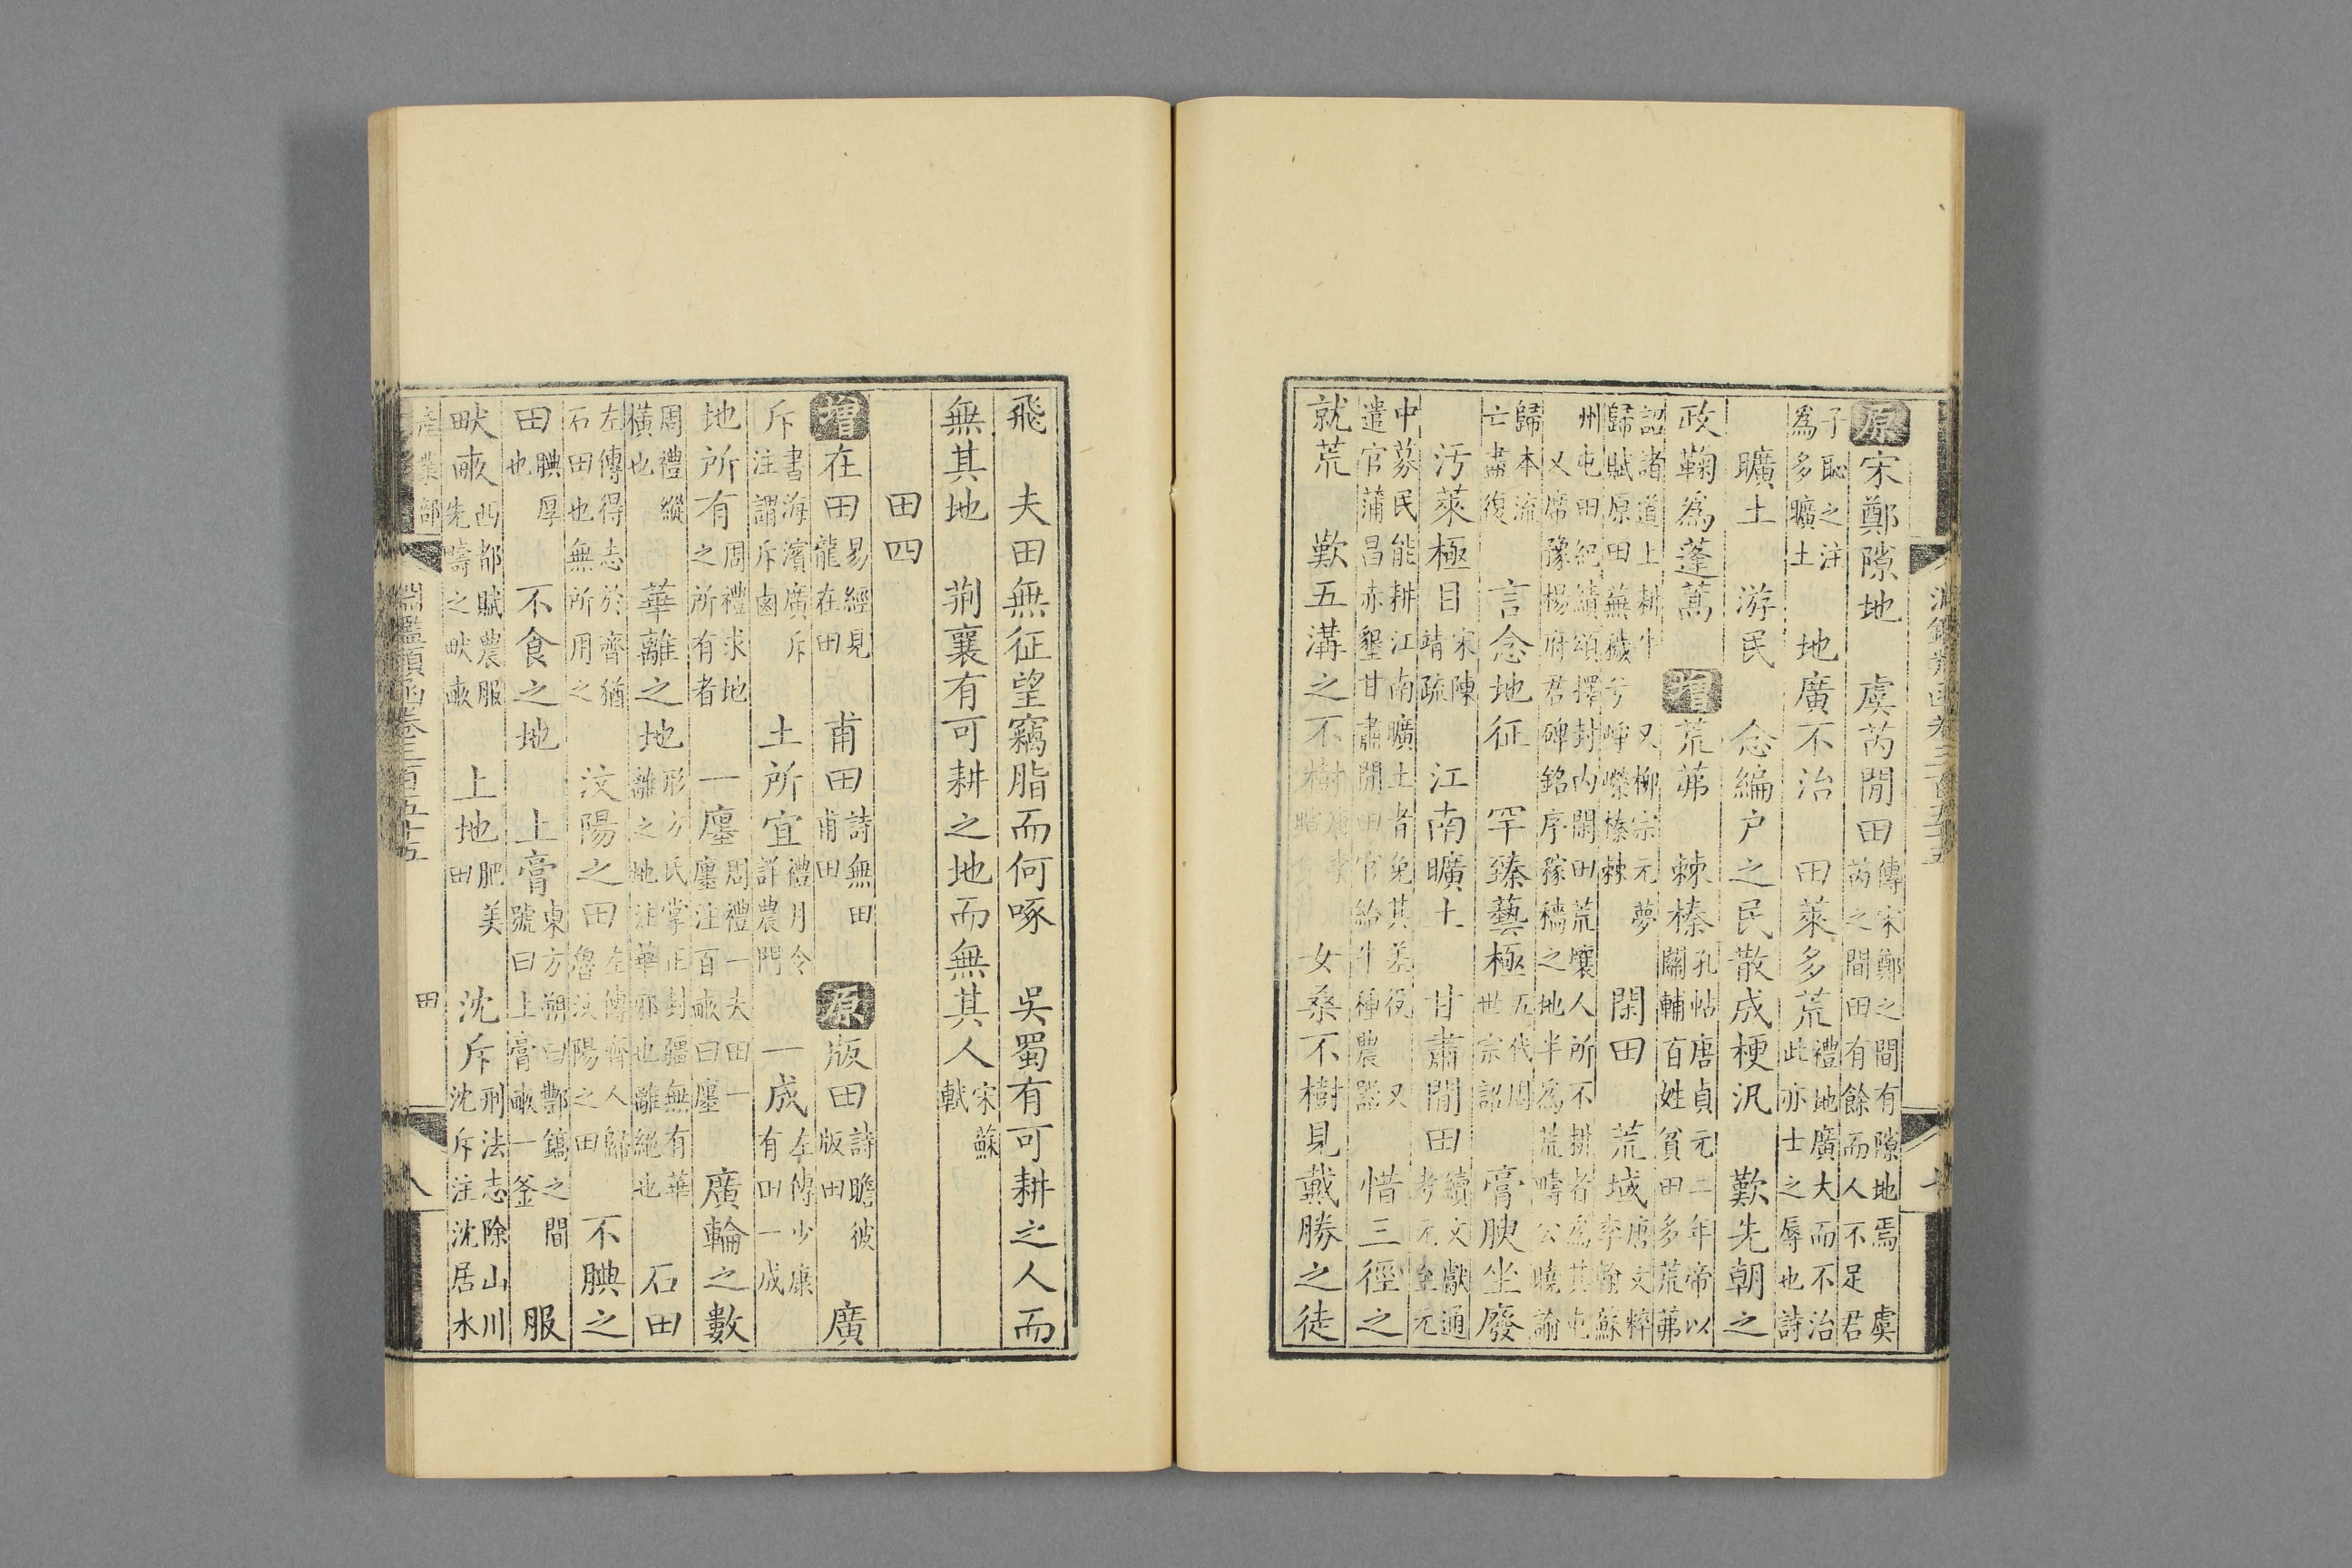 淵鑑類函卷三百五十五
原宋鄭隙地 虞芮閒田 傳宋鄭之間有隙地焉虞芮之間田有餘而人不足君
子恥之注為多曠土 地廣不治 田萊多荒 禮地廣大而不治此亦士之辱也詩
曠土 游民 念編户之民散成梗汎 歎先朝之
政鞠為蓬蒿 增荒茀 棘榛 孔帖唐貞元二年帝以關輔百姓貧田多荒茀
詔諸道上耕牛 又柳宗元夢歸賦原田蕪穢兮崢嶸榛棘 閑田 荒域 唐文粹李翰蘇
州屯田紀績頌擇封内閒田荒壤人所不耕者為其屯又席豫楊府君碑銘序稼穡之地半為荒疇公曉諭
歸本流亡盡復 言念地征 罕臻藝極 五代周世宗詔 膏腴坐廢
汚萊極目 宋陳靖疏 江南曠土 甘肅閒田 續文獻通考元至元
中募民能耕江南曠土者免其差役又遣官蒲昌赤墾甘肅閒田官給牛種農器 惜三徑之
就荒 歎五溝之不樹 女桑不樹見戴勝之徒
飛 夫田無征望竊脂而何啄 吳蜀有可耕之人而
無其地 荆襄有可耕之地而無其人 宋蘇軾
田四
增在田 易經見龍在田 甫田 詩無田甫田 原版田 詩瞻彼版田 廣
斥 書海濱廣斥注謂斥鹵 土所宜 禮月令詳農門 一成 左傳少康有田一成
地所有 周禮求地之所有者 一廛 周禮一夫田一廛注百畝曰廛 廣輪之數
周禮縱橫也 華離之地 形方氏掌正封疆無有華離之地注華邪也離絕也 石田
左傳得志於齊猶石田也無所用之 汶陽之田 左傳齊人歸魯汶陽之田 不腆之
田 腆厚也 不食之地 上膏 東方朔曰酆鎬之間號曰上膏畝一釜 服
畎畝 西都賦農服先疇之畎畝 上地 肥美田 沈斥 刑法志除山川沈斥注沈居水
產業部 淵鑑類函卷三百五十五 田 八